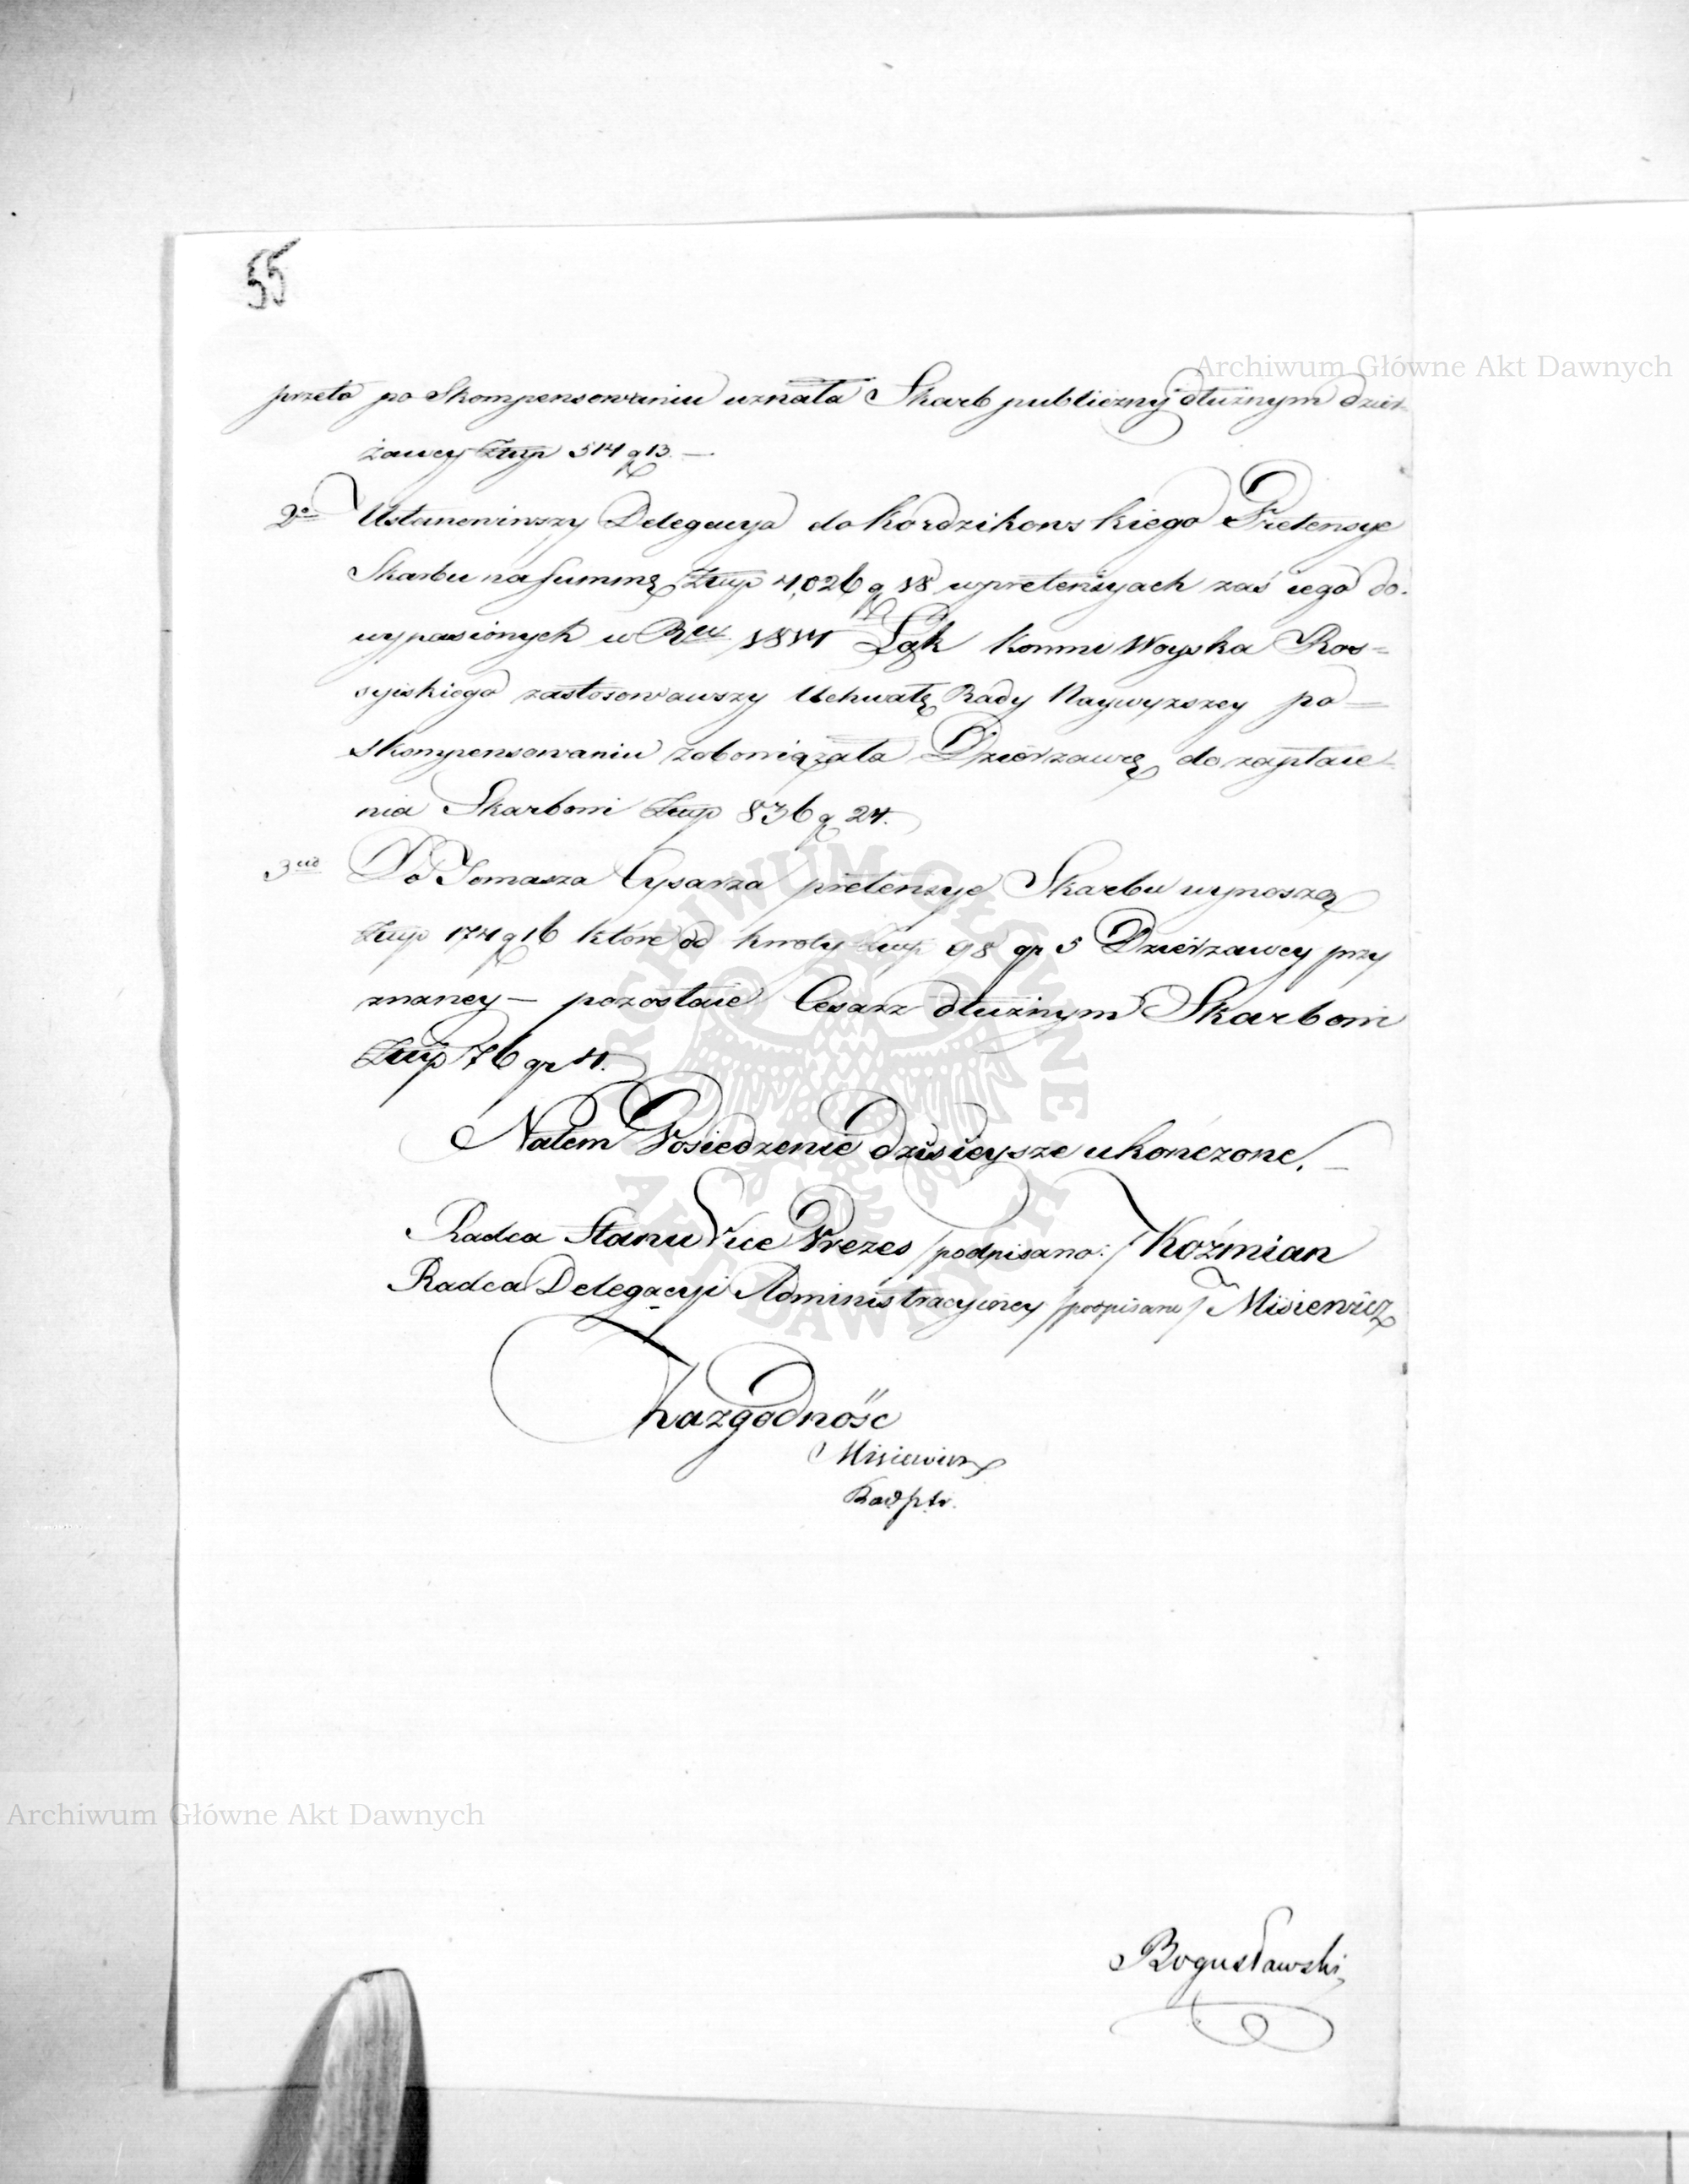 55
Archiwum Główne Akt Dawnych
przeto po Skompensowaniu uznała Skarb publiczny dłużnym dzier-
żawcy Złłp 514 g 13. —
2o Ustanowiwszy Delegacya do Kordzikowskiego Pretensye
Skarbu na Summę Złłp 4,026 g 18 w pretensyach zaś iego do
wypasionych w Rku 1814 Łąk końmi Woyska Ros=
syiskiego zastosowawszy Uchwałę Rady Naywyzszey po=
skompensowaniu zobowiązała Dzierzawcę do zapłace-
nia Skarbowi Złłp 836 g 24.
3tio Do Tomasza Cysarza pretensye Skarbu wynoszą
Złłp 174 g 16 które od kwoty Złłp 98 gr 5 Dzierzawcy przy
znaney — pozostaie Cesarz dłużnym Skarbowi
Złłp 76 gr 11.
Natem Posiedzenie dzisieysze ukończone. —
Radca Stanu Vice Prezes /podpisano:/ Koźmian
Radca Delegacyi Administracyiney /podpisano/ Misiewicz
Zazgodność
Misiewicz
Archiwum Główne Akt Dawnych
Bogusławski
ARCHIWUM GŁÓWNE AKT DAWNYCH